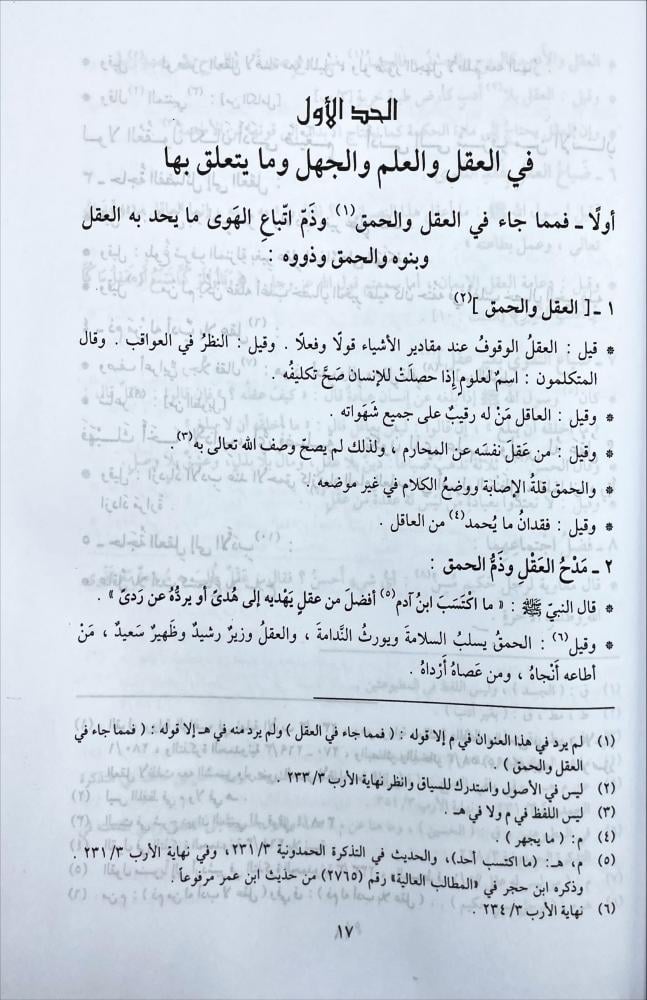 الحد الأول
في العقل والعلم والجهل وما يتعلق بها
أولًا ـ فمما جاء في العقل والحمق(١) وذَمّ اتّباعِ الهَوى ما يحد به العقل
وبنوه والحمق وذووه :
١ ـ [ العقل والحمق ](٢)
* قيل : العقلُ الوقوفُ عند مقادير الأشياء قولًا وفعلًا . وقيل : النظرُ في العواقب . وقال
المتكلمون : اسمٌ لعلومٍ إذا حصلَتْ للإنسان صَحَّ تكليفُه .
* وقيل : العاقل مَنْ له رقيبٌ على جميع شَهَواته .
* وقيل : من عَقلَ نفسَه عن المحارم ، ولذلك لم يصحّ وصف الله تعالى به(٣).
* والحمق قلةُ الإصابة ووضعُ الكلام في غير موضعه .
* وقيل : فقدانُ ما يُحمد(٤) من العاقل .
٢ ـ مَدْحُ العَقْلِ وذَمُّ الحمق :
* قال النبيّ ﷺ : « ما اكْتَسَبَ ابنُ آدم(٥) أفضلَ من عقلٍ يَهْديه إلى هُدىً أو يردُّهُ عن رَدىً » .
* وقيل(٦) : الحمقُ يسلبُ السلامةَ ويورثُ النَّدامةَ ، والعقلُ وزيرٌ رشيدٌ وظَهيرٌ سَعيدٌ ، مَنْ
أطاعه أَنْجاهُ ، ومن عَصاهُ أَرْداهُ .
(١) لم يرد في هذا العنوان في م إلا قوله : ( فمما جاء في العقل ) ولم يرد منه في هـ إلا قوله : ( فمما جاء في
العقل والحمق ) .
(٢) ليس في الأصول واستدرك للسياق وانظر نهاية الأرب ٣/ ٢٣٣ .
(٣) ليس اللفظ في م ولا في هـ .
(٤) م: ( ما يجهر ) .
(٥) م، هـ: (ما اكتسب أحد)، والحديث في التذكرة الحمدونية ٣/ ٢٣١، وفي نهاية الأرب ٣/ ٢٣١ .
وذكره ابن حجر في «المطالب العالية» رقم (٢٧٦٥) من حديث ابن عمر مرفوعاً .
(٦) نهاية الأرب ٣/ ٢٣٤ .
١٧